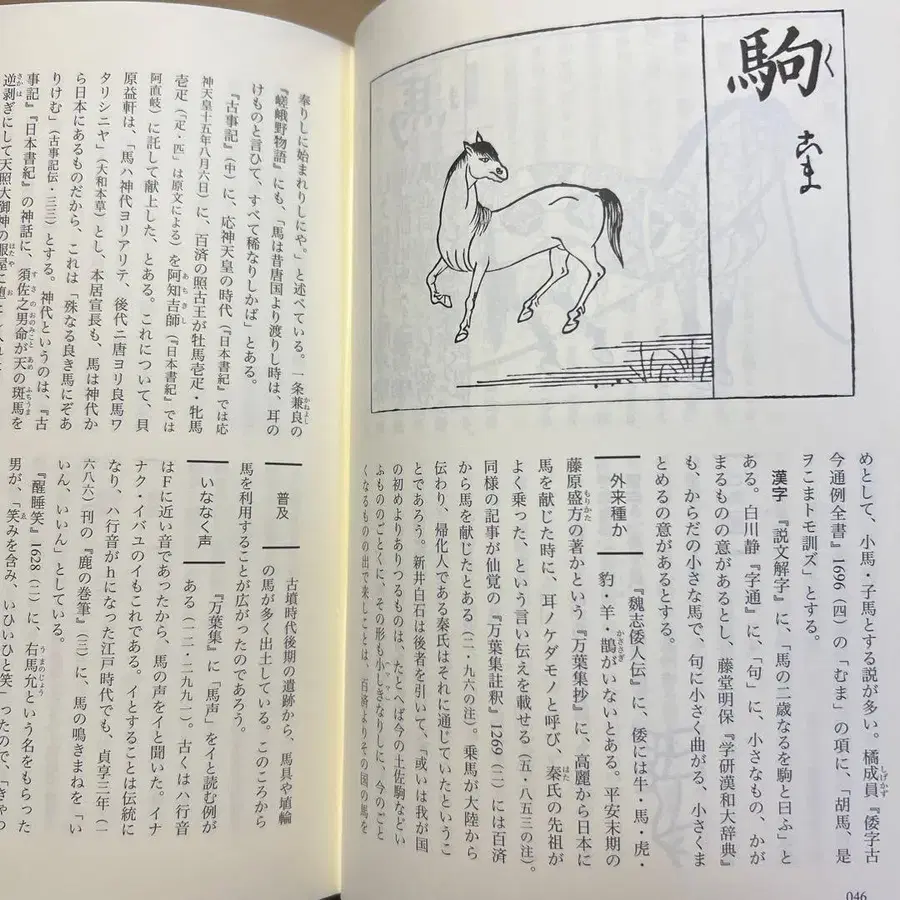 駒
く
こま
めとして、小馬・子馬とする説が多い。橘成員『倭字古
今通例全書』1696(四)の「むま」の項に、「胡馬、是
ヲこまトモ訓ズ」とする。
漢字 『説文解字』に、「馬の二歳なるを駒と曰ふ」と
ある。白川静『字通』に、「句」に、小さなもの、かが
まるものの意があるとし、藤堂明保『学研漢和大辞典』
も、からだの小さな馬で、句に小さく曲がる、小さくま
とめるの意があるとする。
外来種か
『魏志倭人伝』に、倭には牛・馬・虎・
豹・羊・鵲がいないとある。平安末期の
藤原盛方の著かという『万葉集抄』に、高麗から日本に
馬を献じた時に、耳ノケダモノと呼び、秦氏の先祖が
よく乗った、という言い伝えを載せる(五・八五三の注)。
同様の記事が仙覚の『万葉集註釈』1269(二)には百済
から馬を献じたとある(二・九六の注)。乗馬が大陸から
伝わり、帰化人である秦氏はそれに通じていたというこ
とであろう。新井白石は後者を引いて、「或いは我が国
の初めよりありつるものは、たとへば今の土佐駒などい
ふもののごとくに、その形も小しきなりしに、今のごと
くなるものの出で来しことは、百済よりその国の馬を
046
奉りしに始まれりしにや。」と述べている。一条兼良の
『嵯峨野物語』にも、「馬は昔唐国より渡りし時は、耳の
けものと言ひて、すべて稀なりしかば」とある。
『古事記』(中)に、応神天皇の時代(『日本書紀』では応
神天皇十五年八月六日)に、百済の照古王が牡馬壱疋・牝馬
壱疋(「疋・匹」は原文による)を阿知吉師(『日本書紀』では
阿直岐)に託して献上した、とある。これについて、貝
原益軒は、「馬ハ神代ヨリアリテ、後代ニ唐ヨリ良馬ワ
タリシニヤ」(大和本草)とし、本居宣長も、馬は神代か
ら日本にあるものだから、これは「殊なる良き馬にぞあ
りけむ」(古事記伝・三三)とする。神代というのは、『古
事記』『日本書紀』の神話に、須佐之男命が天の斑馬を
逆剥ぎにして天照大御神の服屋に
普及
古墳時代後期の遺跡から、馬具や埴輪
の馬が多く出土している。このころから
馬を利用することが広がったのであろう。
いななく声
『万葉集』に「馬声」をイと読む例が
ある(一二・二九九一)。古くはハ行音
はFに近い音であったから、馬の声をイと聞いた。イナ
ナク・イバユのイもこれである。イとすることは伝統に
なり、ハ行音がhになった江戸時代でも、貞享三年(一
六八六)刊の『鹿の巻筆』(三)に、馬の鳴きまねを「い
いん、いいん」としている。
『醒睡笑』1628(二)に、右馬允という名をもらった
男が、「笑みを含み、いひいひと笑」ったので、「きやつ